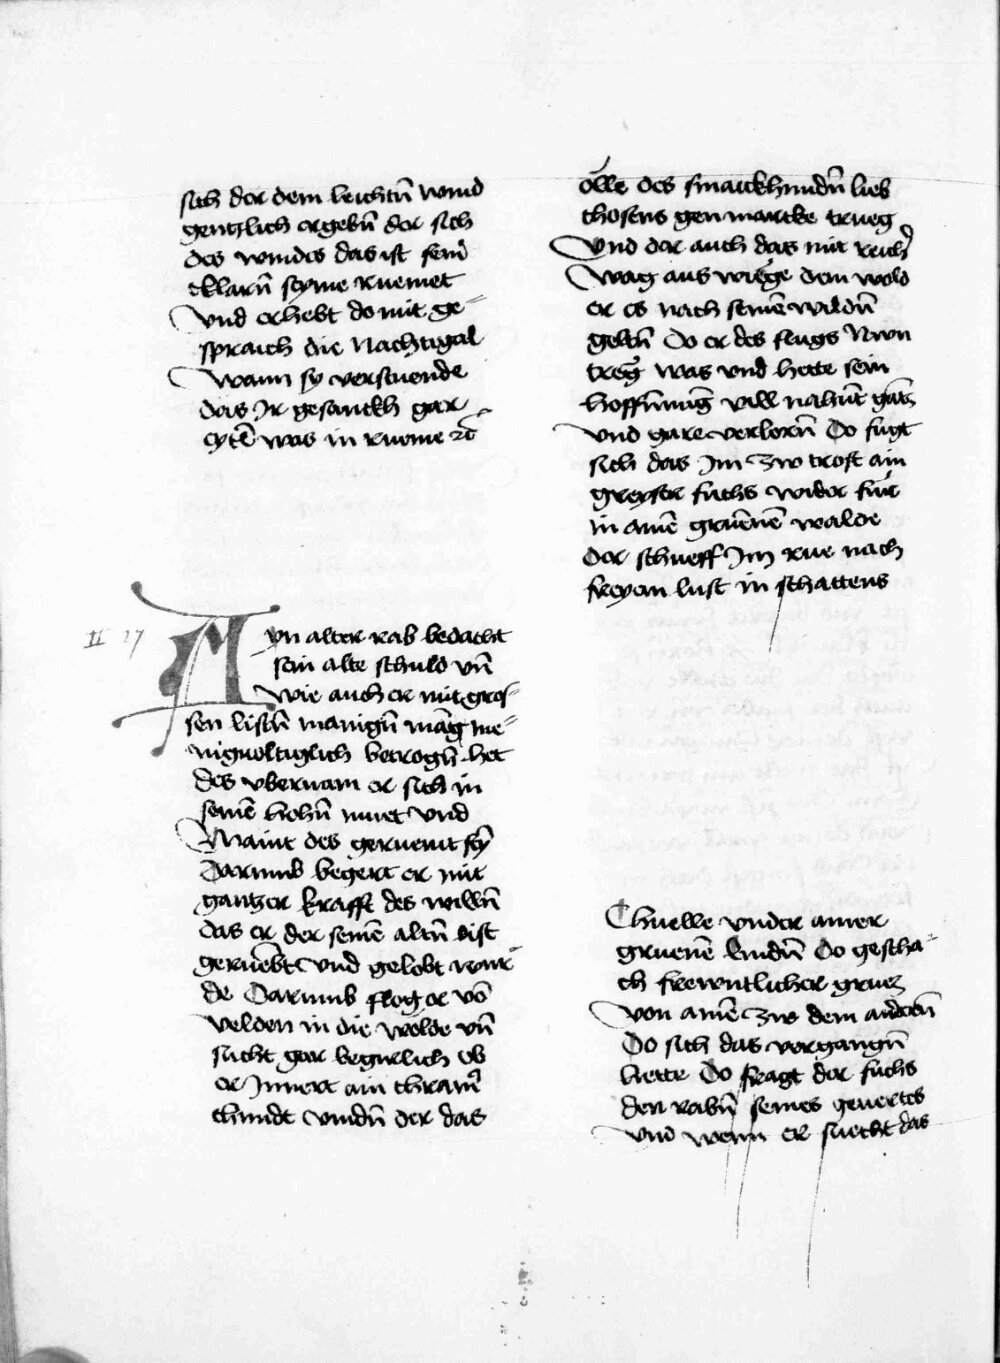 sich der dem leichtn̄ wind
gentzlich ergebn̄ der sich
des windes das ist sein̄
cklarn̄ styme ruemet
Vnd erhebt do mit ge⸗
sprǎch die Nachtigal
Wann sy verstuende
das Ir gesanckh gar
eytl̄ was in rueme ⁊c̄
II 27
AYn alter rab bedacht
sein alte schuld vn̄
wie auch er mit gros⸗
sen listn̄ manign̄ māg me⸗
nigueltiglich betrogn̄ het
des vbernam er sich in
seinē hohn̄ muet Vnd
Maint des geruemt sey
Darumb begert er mit
gantzer krafft des willn̄
das er der seinē altn̄ list
geruēbt Vnd gelobt wur⸗
de Darumb flog er vō
velden in die wělde vn̄
sucht gar begirlich ob
er Innert ain chramer̄
chundt Vindn̄ der das
ǒlle des smackhundn̄ lieb
chosens gen marckt trueg
Vnd der auch das mit reich̄
Wag aus wiege dem wold
er es nach seinē wildn̄
gebn̄ Do er des flugs Nwn
treg was vnd hette sein
hoffnung vill nahūt gātz
Vnd gare verlorn̄ Do fugt
sich das Im zw trost ain
greyser fuchs wider fuer
in ainē gruēnē walde
der schueff Im rue nach
freyem lust in schattens
Chuelle vnder ainer
gruenē lindn̄ Do gescha⸗
ch frewntlicher grues
Von ainē zw dem andern̄
Do sich das vergangn̄
hette Do fragt der fuchs
den rabn̄ seines geuertes
Vnd wenn er suecht das